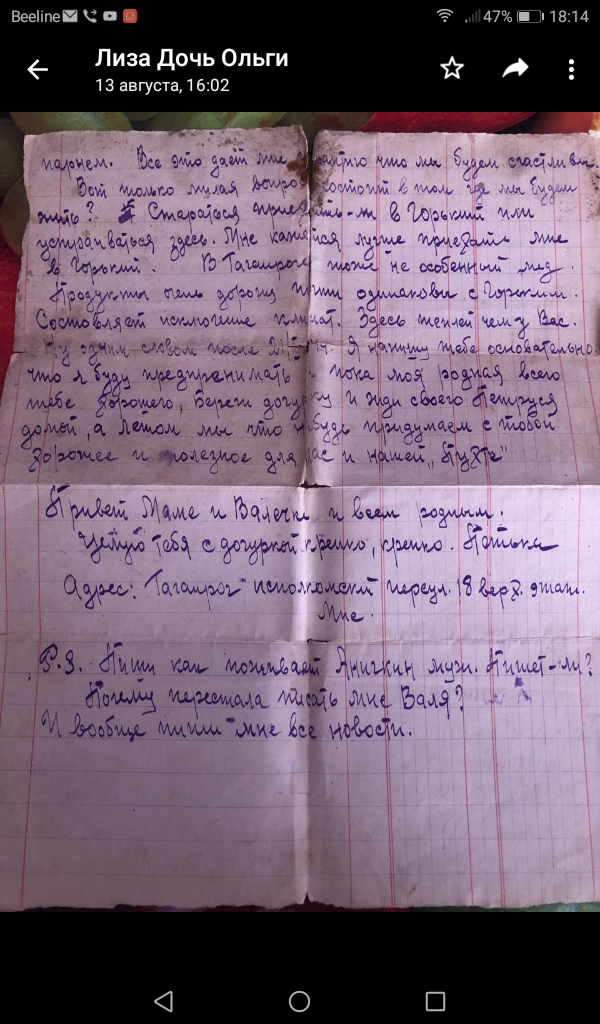 Beeline 47% 18:14
Лиза Дочь Ольги
13 августа, 16:02
парнем. Все это дает мне что мы будем счастливы.
Вот только милая вопрос состоит в том где мы будем
жить? Стараться приезжать-ли в Горький или
устраиваться здесь. Мне кажется лучше приезжать мне
в Горький. В Таганроге тоже не особенный мед.
Продукты очень дороги почти одинаковы с Горьким.
Составляет исключение климат. Здесь теплей чем у Вас.
Ну одним словом после Я напишу тебе основательно
что я буду предпринимать а пока моя родная всего
тебе хорошего, Береги дочурку и жди своего Петруся
домой, а летом мы что нибудь придумаем с тобой
хорошее и полезное для нас и нашей
Привет Маме и Валечке и всем родным.
Целую тебя с дочуркой крепко, крепко.
Адрес: Таганрог исполкомский переул. 18 верх. этаж.
Мне.
P.S. Пиши как поживает Аничкин муж. Пишет-ли?
Почему перестала писать мне Валя?
И вообще пиши мне все новости.